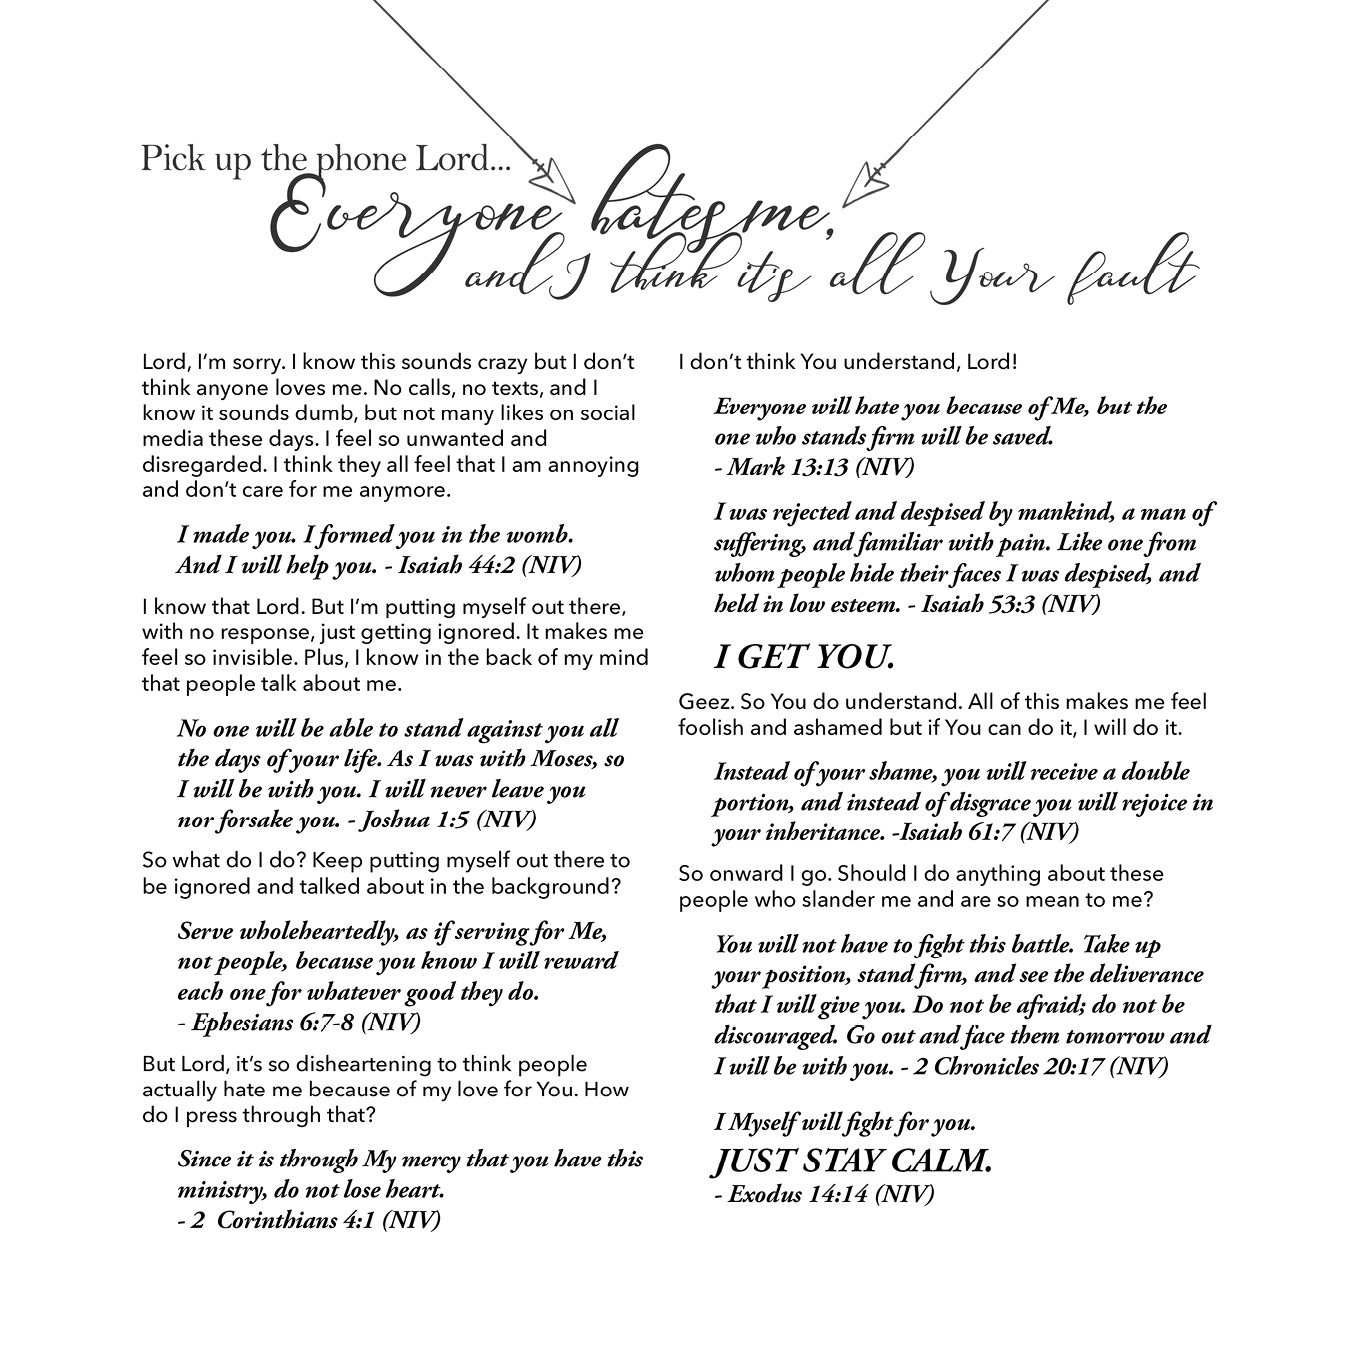 Pick up the phone Lord...
Everyone hates me,
and I think it's all Your fault
Lord, I'm sorry. I know this sounds crazy but I don't
think anyone loves me. No calls, no texts, and I
know it sounds dumb, but not many likes on social
media these days. I feel so unwanted and
disregarded. I think they all feel that I am annoying
and don't care for me anymore.
I made you. I formed you in the womb.
And I will help you. - Isaiah 44:2 (NIV)
I know that Lord. But I'm putting myself out there,
with no response, just getting ignored. It makes me
feel so invisible. Plus, I know in the back of my mind
that people talk about me.
No one will be able to stand against you all
the days of your life. As I was with Moses, so
I will be with you. I will never leave you
nor forsake you. - Joshua 1:5 (NIV)
So what do I do? Keep putting myself out there to
be ignored and talked about in the background?
Serve wholeheartedly, as if serving for Me,
not people, because you know I will reward
each one for whatever good they do.
- Ephesians 6:7-8 (NIV)
But Lord, it's so disheartening to think people
actually hate me because of my love for You. How
do I press through that?
Since it is through My mercy that you have this
ministry, do not lose heart.
- 2 Corinthians 4:1 (NIV)
I don't think You understand, Lord!
Everyone will hate you because of Me, but the
one who stands firm will be saved.
- Mark 13:13 (NIV)
I was rejected and despised by mankind, a man of
suffering, and familiar with pain. Like one from
whom people hide their faces I was despised, and
held in low esteem. - Isaiah 53:3 (NIV)
I GET YOU.
Geez. So You do understand. All of this makes me feel
foolish and ashamed but if You can do it, I will do it.
Instead of your shame, you will receive a double
portion, and instead of disgrace you will rejoice in
your inheritance. -Isaiah 61:7 (NIV)
So onward I go. Should I do anything about these
people who slander me and are so mean to me?
You will not have to fight this battle. Take up
your position, stand firm, and see the deliverance
that I will give you. Do not be afraid; do not be
discouraged. Go out and face them tomorrow and
I will be with you. - 2 Chronicles 20:17 (NIV)
I Myself will fight for you.
JUST STAY CALM.
- Exodus 14:14 (NIV)